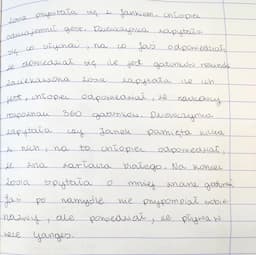 Zosia przywitała się z Jankiem, chłopiec
odwzajemnił gest. Dziewczyna zapytała
się co słychać, na co Jaś odpowiedział,
że dowiedział się ile jest gatunków
Zaciekawiona Zosia zapytała ile ich
jest, chłopiec odpowiedział, że naukowcy
rozpoznali 360 gatunków. Dziewczyna
zapytała czy Janek pamięta kilka
z nich, na to chłopiec odpowiedział,
że zna żarłacza białego. Na koniec
Zosia spytała o mniej znane gatunki
Jaś po namyśle nie przypomniał sobie
nazwy, ale powiedział, że pływa w
rzece Ganges.